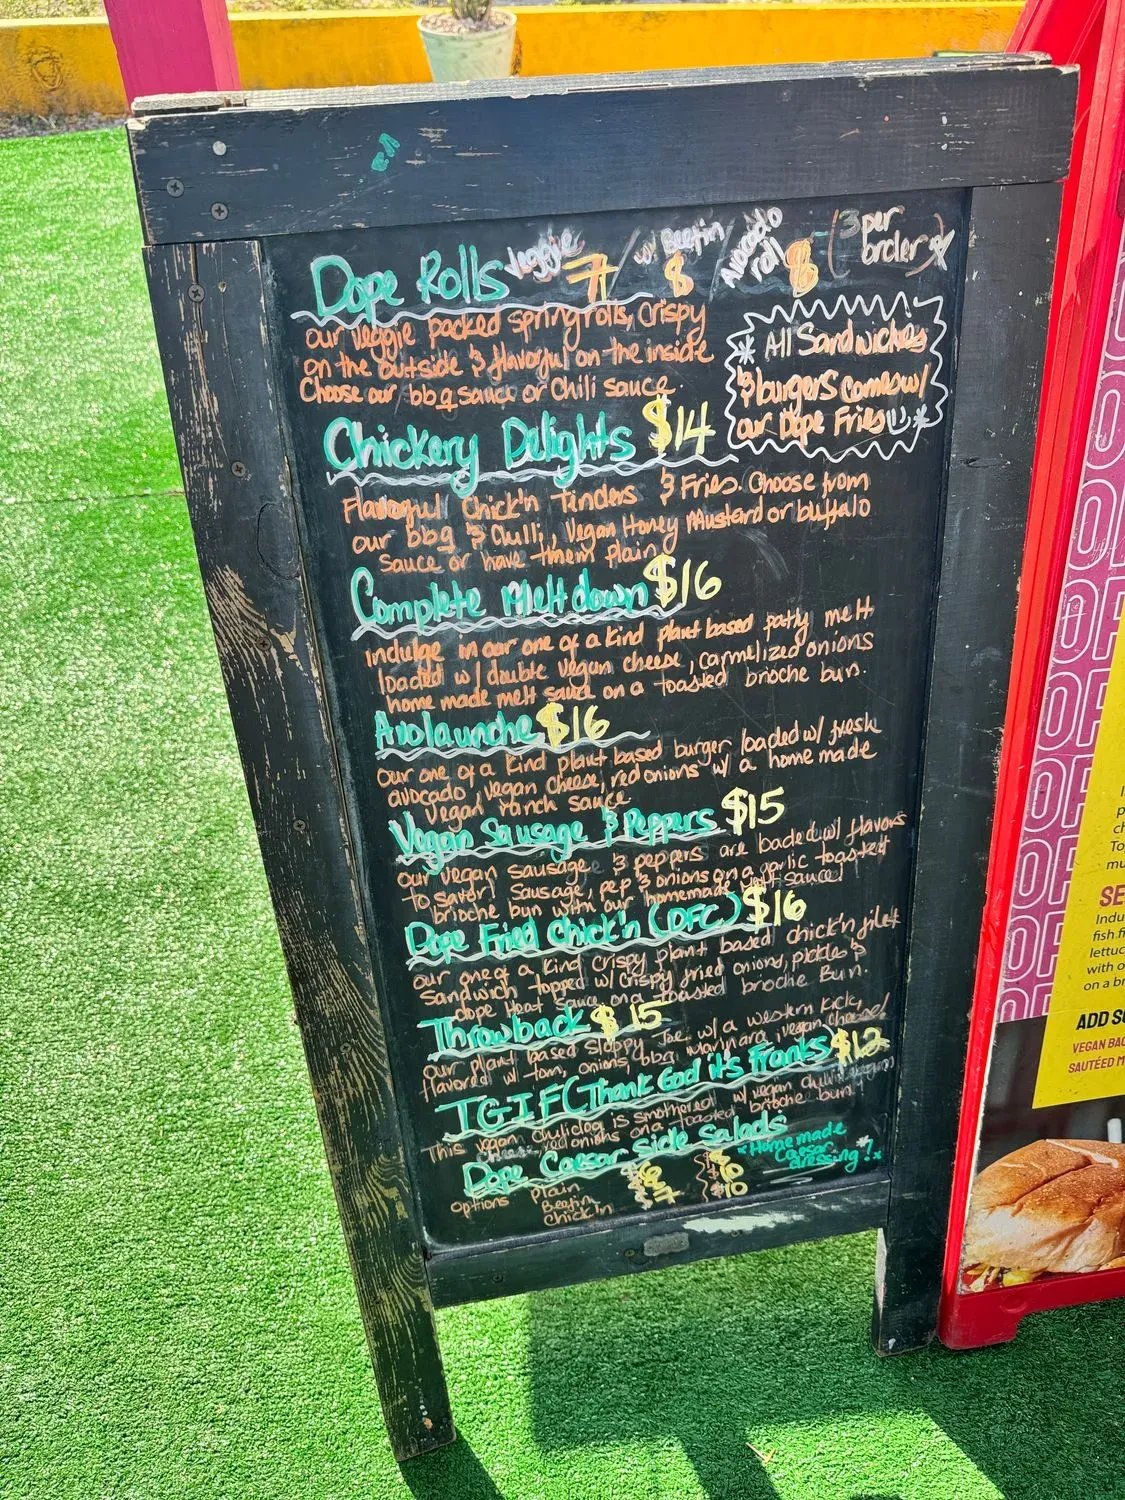 Dope Rolls Veggie 7 / w/ Beefin $ / Avocado roll $8 (3 per order)
our veggie packed springrolls, crispy
on the outside & flavorful on the inside
Choose our bbq sauce or Chili sauce.
* All Sandwiches
& burgers comes w/
our Dope Fries *
Chickery Delights $14
Flavorful Chick'n Tinders & Fries. Choose from
our bbq & Chilli, Vegan Honey Mustard or buffalo
Sauce or have them plain
Complete Meltdown $16
Indulge in our one of a kind plant based patty melt
loaded w/ double vegan cheese, carmelized onions
home made melt sauce on a toasted brioche bun.
Avolaunche $16
Our one of a kind plant based burger loaded w/ fresh
avocado, vegan cheese, red onions w/ a home made
Vegan ranch sauce
Vegan Sausage & Peppers $15
our vegan sausage & peppers are loaded w/ flavors
to savor! Sausage, pep & onions on a garlic toasted
brioche bun with our homemade sauce!
Dope Fried Chick'n (DFC) $16
our one of a kind crispy plant based chick'n filet
Sandwich topped w/ crispy fried onions, pickles &
dope Heat Sauce on a toasted brioche Bun.
Throwback $15
our plant based Sloppy Joe w/ a western kick,
flavored w/ tom, onions, bbq, marinara, vegan cheese!
TGIF (Thank God it's Franks $12
This vegan chilidog is smothered w/ vegan chili
cheese, red onions on a toasted brioche bun!
Dope Caesar side Salads
*Homemade
Caesar
dressing!*
options Plain $6
Beefin
Chick'n $7 $10
OPE
OPE
OPE
SE
Indu
fish fi
lettuc
with o
on a br
ADD SO
VEGAN BAC
SAUTÉED M